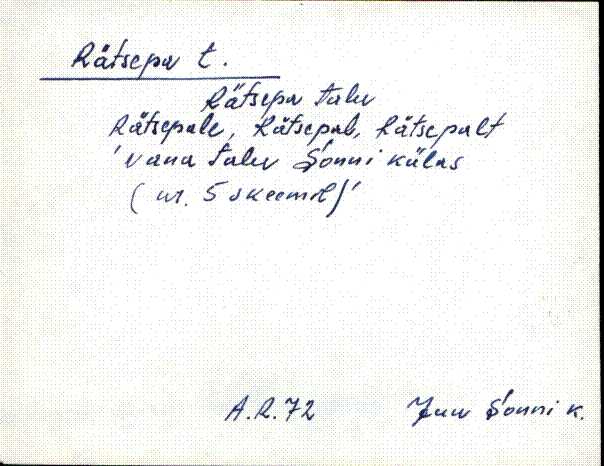 Rätsepa t.
Rätsepa talu
Rätsepale, Rätsepal, Rätsepalt
'vana talu Sonni külas
(nr. 5 skeemil)'
A.R.72 Juu Sonni k.